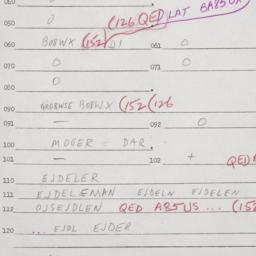 040
(126 QED LAT BA85UX
050 0
060 BOBWX (152) DI 061 0
070 0 071 0
080 0
090 GROBWSE BOBWX (152 (126
091 — 092 0
100 MOGER = DAR.
101 — 102 +
QED
110 EJDELER
111 EJDELEMAN EJDELN EJDELEN
112 OJSEJDLEN QED A85US... (152
120 ... EJDL EJDER